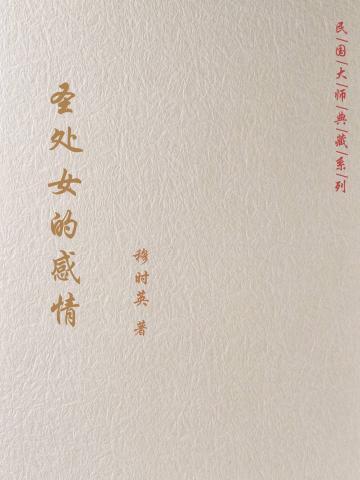 民国大师典藏系列
圣处女的感情
穆时英 著